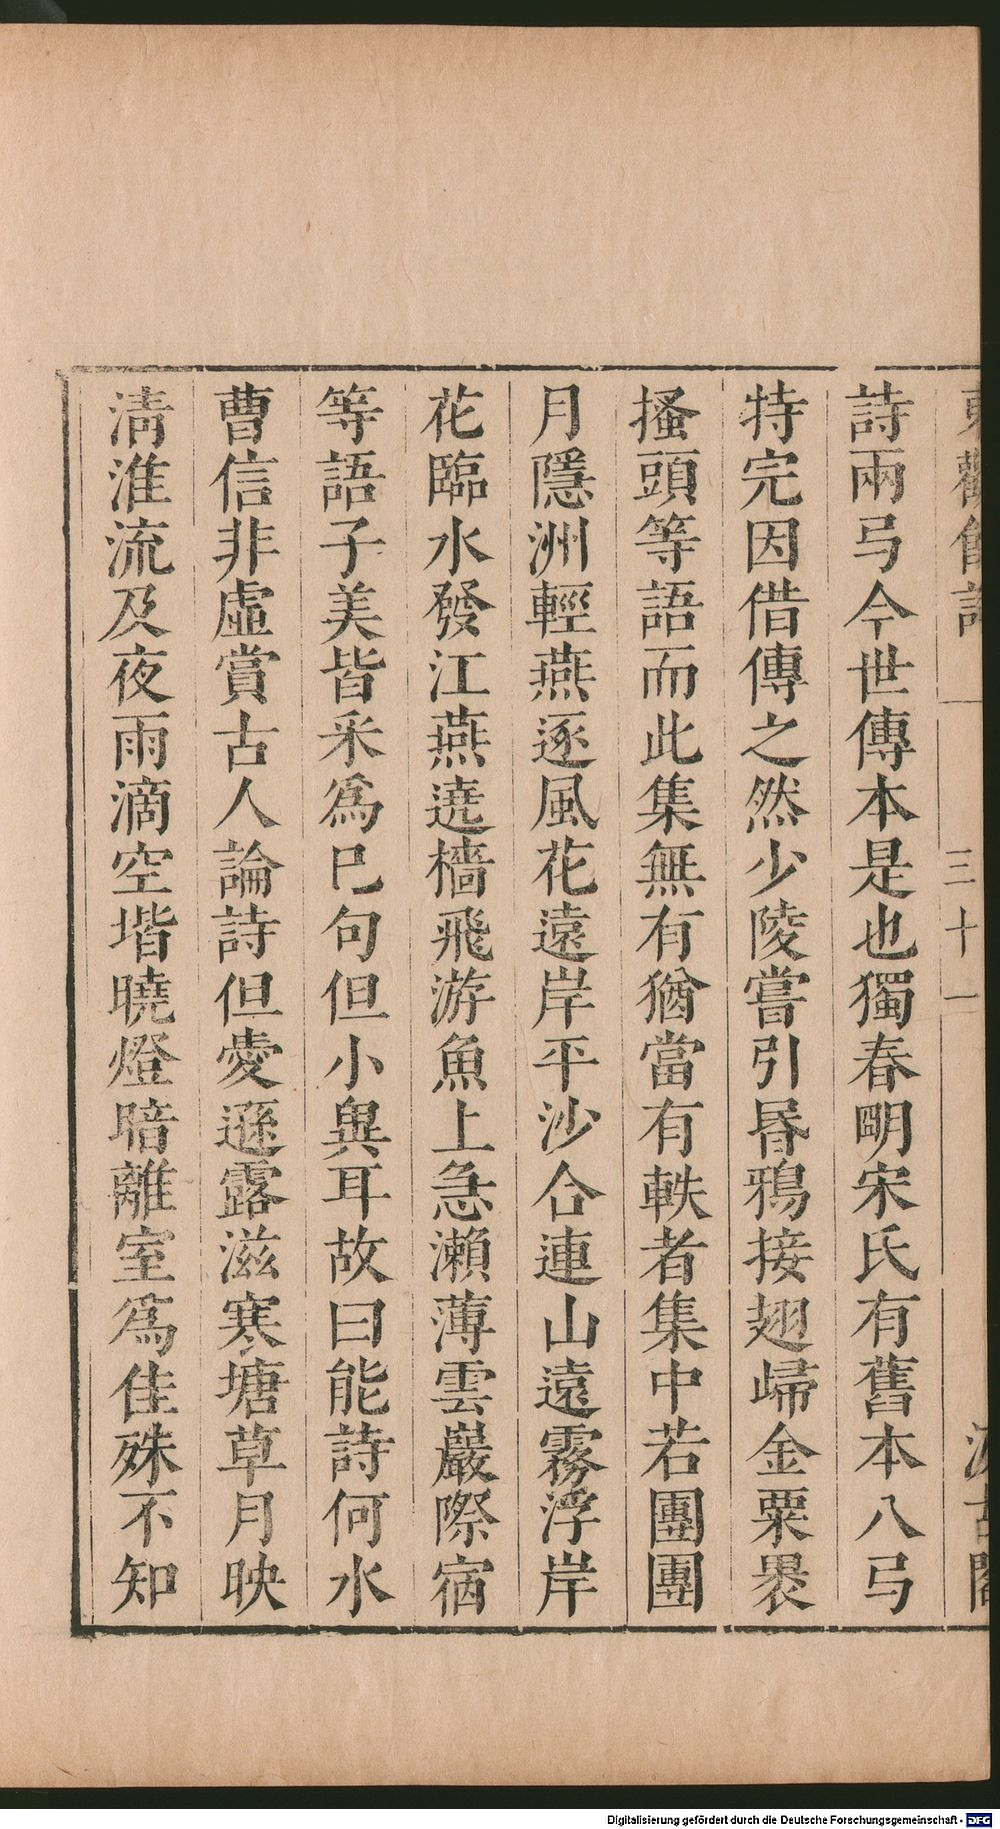 東觀餘論 三十一 汲古閣
詩兩弓今世傳本是也獨春明宋氏有舊本八弓
特完因借傳之然少陵嘗引昏鴉接翅歸金粟裊
搔頭等語而此集無有猶當有軼者集中若團團
月隱洲輕燕逐風花遠岸平沙合連山遠霧浮岸
花臨水發江燕遶檣飛游魚上急瀨薄雲巖際宿
等語子美皆采爲已句但小異耳故曰能詩何水
曹信非虛賞古人論詩但愛遜露滋寒塘草月映
淸淮流及夜雨滴空堦曉燈暗離室爲佳殊不知
Digitalisierung gefördert durch die Deutsche Forschungsgemeinschaft - DFG